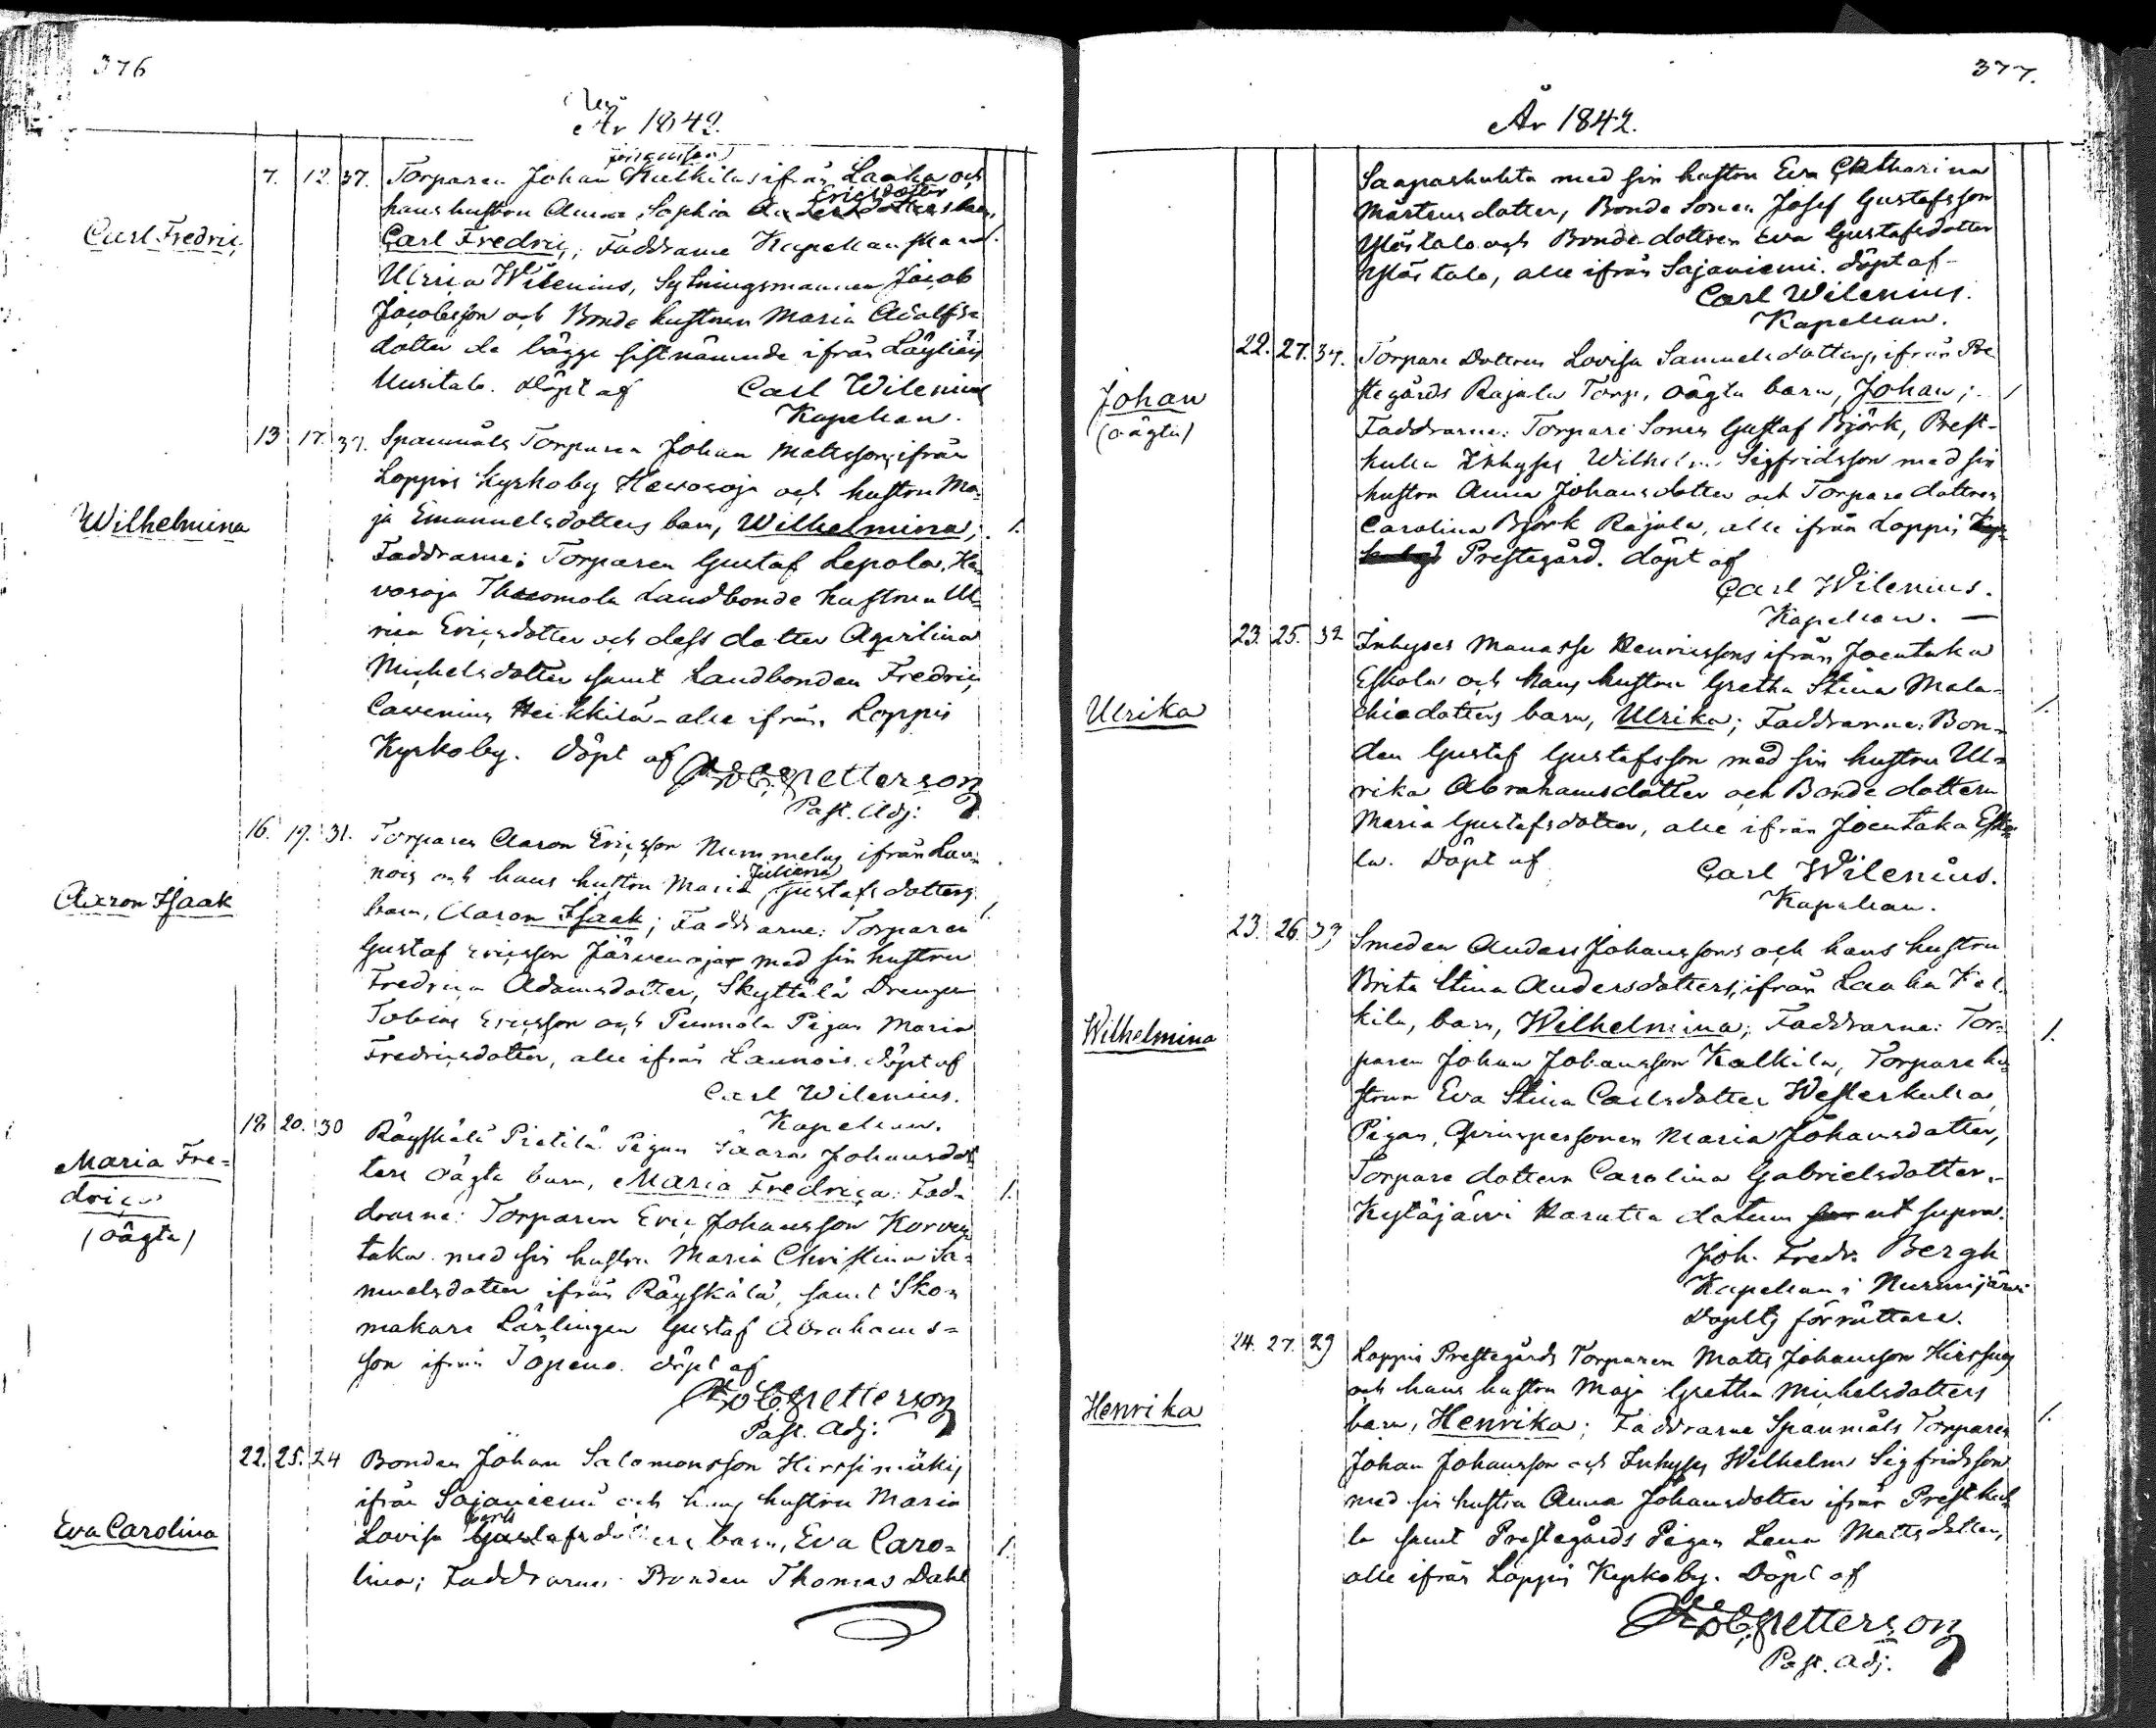 376
År 1842.
Carl Fredric
7. 12. 37. Torparen Johan Kulkilas ifrån Laaka och
Ericsdotter
hans hustru Anna Sophia barn,
Carl Fredric; Faddrarne Kapellans Mams.
Ulrica Wilenius, Sytningsmannen Jacob
Jacobsson och Bonde hustrun Maria Adolfs
dotter de bägge sistnämnde ifrån Läyliäis
Uusitalo. Döpt af Carl Wilenius
Kapellan.
Wilhelmina
13 17. 37. Spannmåls Torparen Johan Mattssons ifrån
Loppis Kyrkoby Hevosoja och hustru Ma-
ja Emanuelsdotters barn, Wilhelmina; 1.
Faddrarne: Torparen Gustaf Lepola, He-
vosoja Thuomola Landbonde hustrun Ul-
rica Ericsdotter och dess dotter Aqvilina
Michelsdotter samt Landbonden Fredric
Cavenius Heikkilä - alla ifrån Loppis
Kyrkoby. Döpt af Petterson
Past. Adj:
Aaron Isaak
16. 19. 31. Torparen Aaron Ericsson Nummelas ifrån Lau-
Juliana
nois och hans hustru Maria Gustafsdotters
barn, Aaron Isaak; Faddrarne: Torparen 1.
Gustaf Ericsson Järvenojas med sin hustru
Fredrica Adamsdotter, Skyttälä Drengen
Tobias Ericsson och Punnola Pigan Maria
Fredricsdotter, alla ifrån Launois. Döpt af
Carl Wilenius.
Kapellan.
Maria Fre-
drica
(oägta)
18 20. 30 Räyskälä Pietilä Pigan Saara Johansdot-
ters oägta barn, Maria Fredrica. Fad- 1.
drarne: Torparen Eric Johansson Korven
taka med sin hustru Maria Christina Sa-
muelsdotter ifrån Räyskälä, samt Sko-
makare Lärlingen Gustaf Abrahams-
son ifrån Topeno. Döpt af
Petterson
Past. Adj:
Eva Carolina
22. 25. 24 Bonden Johan Salomonsson Hirsimäkis
ifrån Sajaniemi och hans hustru Maria
Carls
Lovisa Gustafsdotters barn, Eva Caro- 1.
lina; Faddrarne: Bonden Thomas Dahl
377.
År 1842.
Saapashuhta med sin hustru Eva Catharina
Mårtensdotter, Bonde Sonen Josef Gustafsson
Ylöstalo och Bonde dottren Eva Gustafsdotter
Ylöstalo, alla ifrån Sajaniemi. Döpt af
Carl Wilenius.
Kapellan.
Johan
(oägta)
22. 27. 37. Torpare Dottren Lovisa Samuelsdotters ifrån Pre
stegårds Rajala Torp, oägta barn, Johan; 1
Faddrarne: Torpare Sonen Gustaf Björk, Prest-
kulla Inhyses Wilhelm Sigfridsson med sin
hustru Anna Johansdotter och Torpare dottren
Carolina Björk Rajala, alla ifrån Loppis
Prestegård. Döpt af
Carl Wilenius.
Kapellan.
Ulrika
23. 25. 32 Inhyses Manasse Henricssons ifrån Joentaka
Eskola och hans hustru Gretha Stina Mala-
chiedotters barn, Ulrika; Faddrarne: Bon- 1.
den Gustaf Gustafsson med sin hustru Ul-
rika Abrahamsdotter och Bonde dottern
Maria Gustafsdotter, alla ifrån Joentaka Esko-
la. Döpt af
Carl Wilenius.
Kapellan.
Wilhelmina
23. 26. 39 Smeden Anders Johanssons och hans hustru
Brita Stina Andersdotters, ifrån Laaka Kal-
kila, barn, Wilhelmina; Faddrarne: Tor- 1.
paren Johan Johansson Kalkila, Torpare hu-
strun Eva Stina Carlsdotter Westerkulla,
Pigan, Qvinspersonen Maria Johansdotter,
Torpare dottern Carolina Gabrielsdotter.
Kytäjärvi datum ut supra.
Joh. Fredr. Bergh
Kapellan i Nurmijärvi
Dopets förrättare.
Henrika
24. 27. 29 Loppis Prestegårds Torparen Matts Johansson Hirssus
och hans hustru Maja Gretha Michelsdotters
barn, Henrika; Faddrarne Spanmåls Torparen 1.
Johan Johansson och Inhyses Wilhelm Sigfridsson
med sin hustru Anna Johansdotter ifrån Prestkul-
la samt Prestegårds Pigan Lena Mattsdotter,
alla ifrån Loppis Kyrkoby. Döpt af
Petterson
Past. Adj.